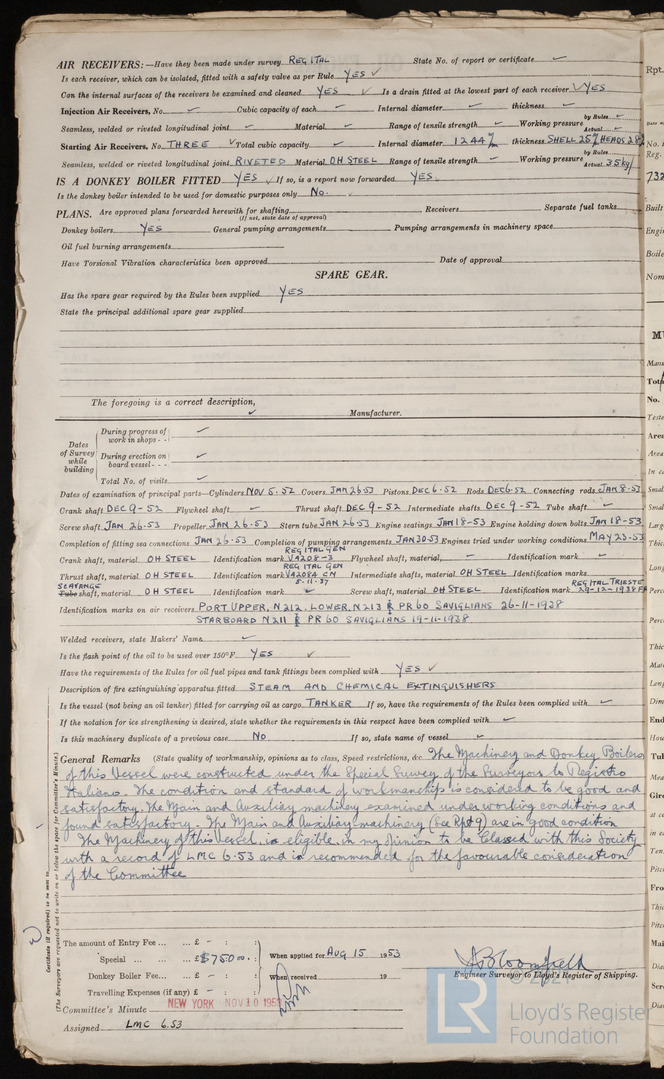 AIR RECEIVERS:—Have they been made under survey REGITAL State No. of report or certificate ✓
Is each receiver, which can be isolated, fitted with a safety valve as per Rule YES ✓
Can the internal surfaces of the receivers be examined and cleaned YES ✓ Is a drain fitted at the lowest part of each receiver ✓ YES
Injection Air Receivers, No. ✓ Cubic capacity of each ✓ Internal diameter ✓ thickness ✓
Seamless, welded or riveted longitudinal joint ✓ Material ✓ Range of tensile strength ✓ Working pressure by Rules ✓ Actual ✓
Starting Air Receivers, No. THREE ✓ Total cubic capacity ✓ Internal diameter 1244 m/m thickness SHELL 25 HEADS 28
Seamless, welded or riveted longitudinal joint RIVETED Material OH STEEL Range of tensile strength ✓ Working pressure by Rules ✓ Actual 35 kg/
IS A DONKEY BOILER FITTED YES ✓ If so, is a report now forwarded YES.
Is the donkey boiler intended to be used for domestic purposes only No.
PLANS. Are approved plans forwarded herewith for shafting Receivers Separate fuel tanks
(If not, state date of approval)
Donkey boilers YES General pumping arrangements Pumping arrangements in machinery space
Oil fuel burning arrangements
Have Torsional Vibration characteristics been approved Date of approval
SPARE GEAR.
Has the spare gear required by the Rules been supplied YES
State the principal additional spare gear supplied
The foregoing is a correct description,
✓ Manufacturer.
Dates of Survey while building
During progress of work in shops - - ✓
During erection on board vessel - - - ✓
Total No. of visits ✓
Dates of examination of principal parts—Cylinders NOV 5. 52 Covers JAN 26-53 Pistons DEC 6-52 Rods DEC 6-52 Connecting rods JAN 8-53
Crank shaft DEC 9-52 Flywheel shaft ✓ Thrust shaft DEC 9-52 Intermediate shafts DEC 9-52 Tube shaft ✓
Screw shaft JAN 26-53 Propeller JAN 26-53 Stern tube JAN 26-53 Engine seatings JAN 18-53 Engine holding down bolts JAN 18-53
Completion of fitting sea connections JAN 26-53 Completion of pumping arrangements JAN 30-53 Engines tried under working conditions MAY 23-53
REG ITAL GEN
Crank shaft, material OH STEEL Identification mark V4208-3 Flywheel shaft, material ✓ Identification mark ✓
REG ITAL GEN
Thrust shaft, material OH STEEL Identification mark V4208A CN Intermediate shafts, material OH STEEL Identification marks
8-11-37 REG ITAL TRIESTE
SCAVANGE
Tube shaft, material OH STEEL Identification mark ✓ Screw shaft, material OH STEEL Identification mark 29-12-1938
Identification marks on air receivers PORT UPPER, N212. LOWER, N213 & PR 60 SAVIGLIANS 26-11-1938
STARBOARD N211 & PR 60 SAVIGLIANS 19-11-1938
Welded receivers, state Makers' Name ✓
Is the flash point of the oil to be used over 150°F. YES ✓
Have the requirements of the Rules for oil fuel pipes and tank fittings been complied with YES ✓
Description of fire extinguishing apparatus fitted STEAM AND CHEMICAL EXTINGUISHERS
Is the vessel (not being an oil tanker) fitted for carrying oil as cargo TANKER If so, have the requirements of the Rules been complied with ✓
If the notation for ice strengthening is desired, state whether the requirements in this respect have been complied with ✓
Is this machinery duplicate of a previous case No If so, state name of vessel ✓
General Remarks (State quality of workmanship, opinions as to class, Speed restrictions, &c. The Machinery and Donkey Boilers
of this Vessel were constructed under the Special Survey of the Surveyors to Registro
Italiano. The condition and standard of workmanship is considered to be good and
satisfactory. The Main and Auxiliary machiney examined under working conditions and
found satisfactory. The Main and Auxiliary machinery (See Rpt 9) are in good condition
The Machinery of this Vessel is eligible in my opinion to be Classed with this Society
with a record of LMC 6.53 and is recommended for the favourable consideration
of the Committee
Certificate (if required) to be sent to
(The Surveyors are requested not to write on or below the space for Committee's Minute.)
The amount of Entry Fee ... £ - : :
Special ... £ $750.00 : When applied for AUG 15 1953
Donkey Boiler Fee ... £ - : : When received 19
Travelling Expenses (if any) £ - : :
Engineer Surveyor to Lloyd's Register of Shipping.
Committee's Minute NEW YORK NOV 10 195
Assigned LMC 6.53
LR
Lloyd's Register
Foundation